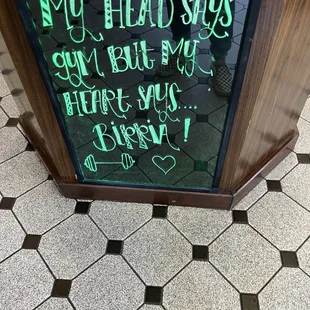 MY HEAD SAYS
GYM BUT MY
HEART SAYS....
BIRRIA!